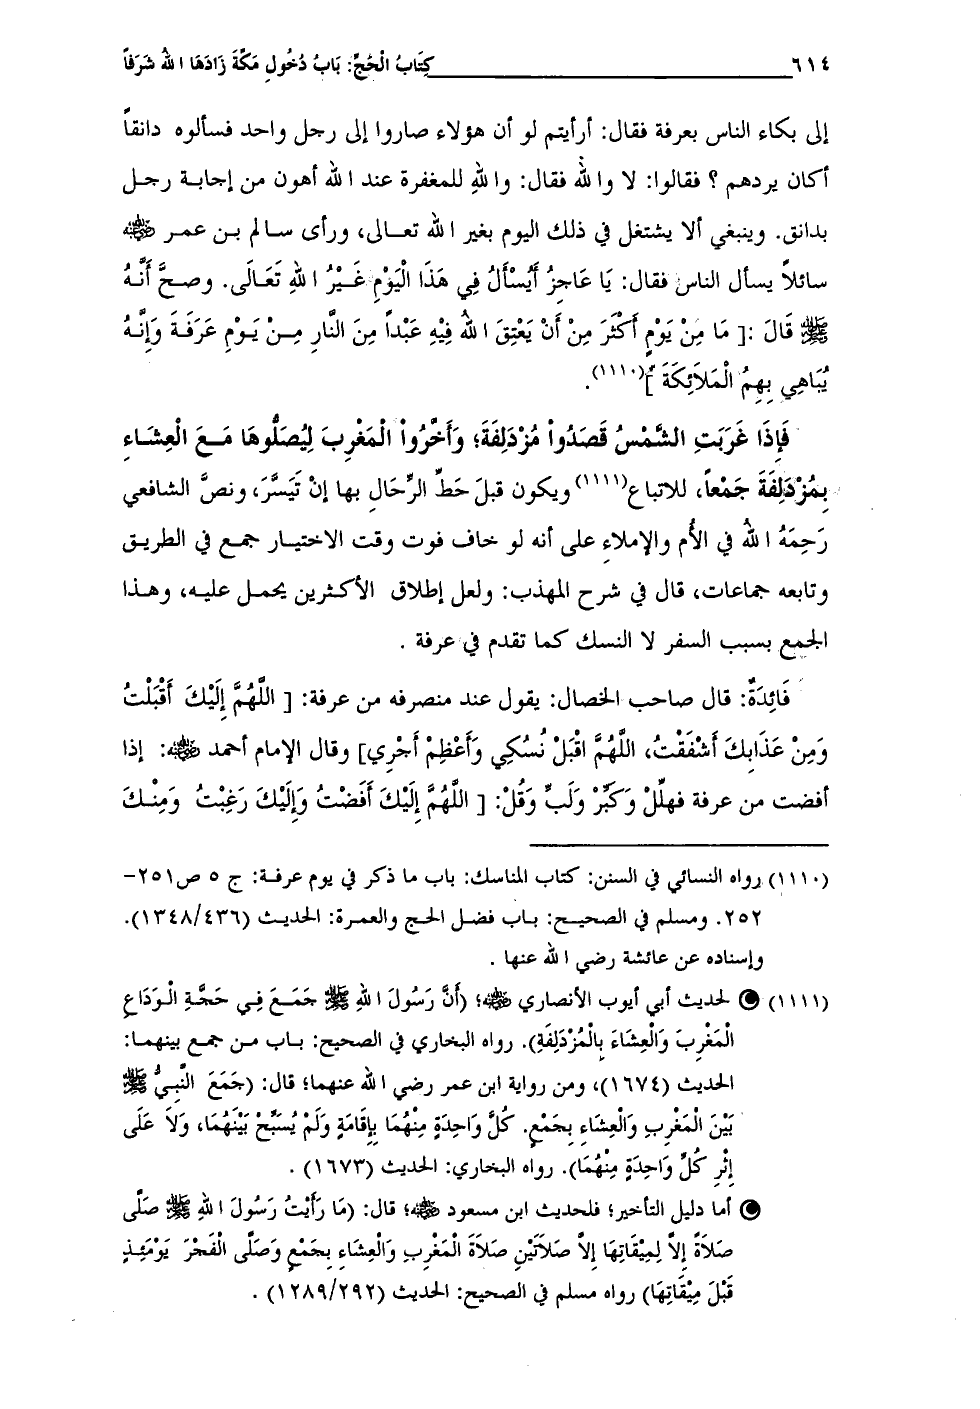 ٦١٤ كِتَابُ الْحَجِّ: بَابُ دُخُولِ مَكَّةَ زَادَهَا اللهُ شَرَفاً
إلى بكاء الناس بعرفة فقال: أرأيتم لو أن هؤلاء صاروا إلى رجل واحد فسألوه دانقاً
أكان يردهم ؟ فقالوا: لا واللهِ فقال: واللهِ للمغفرة عند الله أهون من إجابة رجل
بدانق. وينبغي ألا يشتغل في ذلك اليوم بغير الله تعالى، ورأى سالم بن عمر ﷺ
سائلاً يسأل الناس فقال: يَا عَاجِزُ أَيُسْأَلُ فِي هَذَا الْيَوْمِ غَيْرُ اللهِ تَعَالَى. وصحَّ أَنَّهُ
ﷺ قَالَ :[ مَا مِنْ يَوْمٍ أَكْثَرَ مِنْ أَنْ يَعْتِقَ اللهُ فِيْهِ عَبْداً مِنَ النَّارِ مِنْ يَوْمِ عَرَفَةَ وَإِنَّهُ
يُبَاهِي بِهِمُ الْمَلَائِكَةَ ](١١١٠).
فَإِذَا غَرَبَتِ الشَّمْسُ قَصَدُواْ مُزْدَلِفَةَ؛ وَأَخَّرُواْ الْمَغْرِبَ لِيُصَلُّوهَا مَعَ الْعِشَاءِ
بِمُزْدَلِفَةَ جَمْعاً، للاتباع(١١١١) ويكون قبلَ حَطِّ الرِّحَالِ بها إنْ تَيَسَّرَ، ونصَّ الشافعي
رَحِمَهُ اللهُ في الأُم والإملاءِ على أنه لو خاف فوت وقت الاختيار جمع في الطريق
وتابعه جماعات، قال في شرح المهذب: ولعل إطلاق الأكثرين يحمل عليه، وهذا
الجمع بسبب السفر لا النسك كما تقدم في عرفة .
فَائِدَةٌ: قال صاحب الخصال: يقول عند منصرفه من عرفة: [ اللَّهُمَّ إِلَيْكَ أَقْبَلْتُ
وَمِنْ عَذَابِكَ أَشْفَقْتُ، اللَّهُمَّ اقْبَلْ نُسُكِي وَأَعْظِمْ أَجْرِي] وقال الإمام أحمد ﷺ: إذا
أفضت من عرفة فهلِّلْ وَكَبِّرْ وَلَبِّ وَقُلْ: [ اللَّهُمَّ إِلَيْكَ أَفَضْتُ وَإِلَيْكَ رَغِبْتُ وَمِنْكَ
(١١١٠) رواه النسائي في السنن: كتاب المناسك: باب ما ذكر في يوم عرفة: ج ٥ ص٢٥١-
٢٥٢. ومسلم في الصحيح: باب فضل الحج والعمرة: الحديث (١٣٤٨/٤٣٦).
وإسناده عن عائشة رضي الله عنها .
(١١١١) لحديث أبي أيوب الأنصاري ﷺ؛ (أَنَّ رَسُولَ اللهِ ﷺ جَمَعَ فِي حَجَّةِ الْوَدَاعِ
الْمَغْرِبَ وَالْعِشَاءَ بِالْمُزْدَلِفَةِ). رواه البخاري في الصحيح: باب من جمع بينهما:
الحديث (١٦٧٤)، ومن رواية ابن عمر رضي الله عنهما؛ قال: (جَمَعَ النَّبِيُّ ﷺ
بَيْنَ الْمَغْرِبِ وَالْعِشَاءِ بِجَمْعٍ. كُلُّ وَاحِدَةٍ مِنْهُمَا بِإِقَامَةٍ وَلَمْ يُسَبِّحْ بَيْنَهُمَا، وَلاَ عَلَى
إِثْرِ كُلِّ وَاحِدَةٍ مِنْهُمَا). رواه البخاري: الحديث (١٦٧٣) .
أما دليل التأخير؛ فلحديث ابن مسعود ﷺ؛ قال: (مَا رَأَيْتُ رَسُولَ اللهِ ﷺ صَلَّى
صَلاَةً إِلاَّ لِمِيْقَاتِهَا إِلاَّ صَلاَتَيْنِ صَلاَةَ الْمَغْرِبِ وَالْعِشَاءِ بِجَمْعٍ وَصَلَّى الْفَجْرَ يَوْمَئِذٍ
قَبْلَ مِيْقَاتِهَا) رواه مسلم في الصحيح: الحديث (١٢٨٩/٢٩٢) .